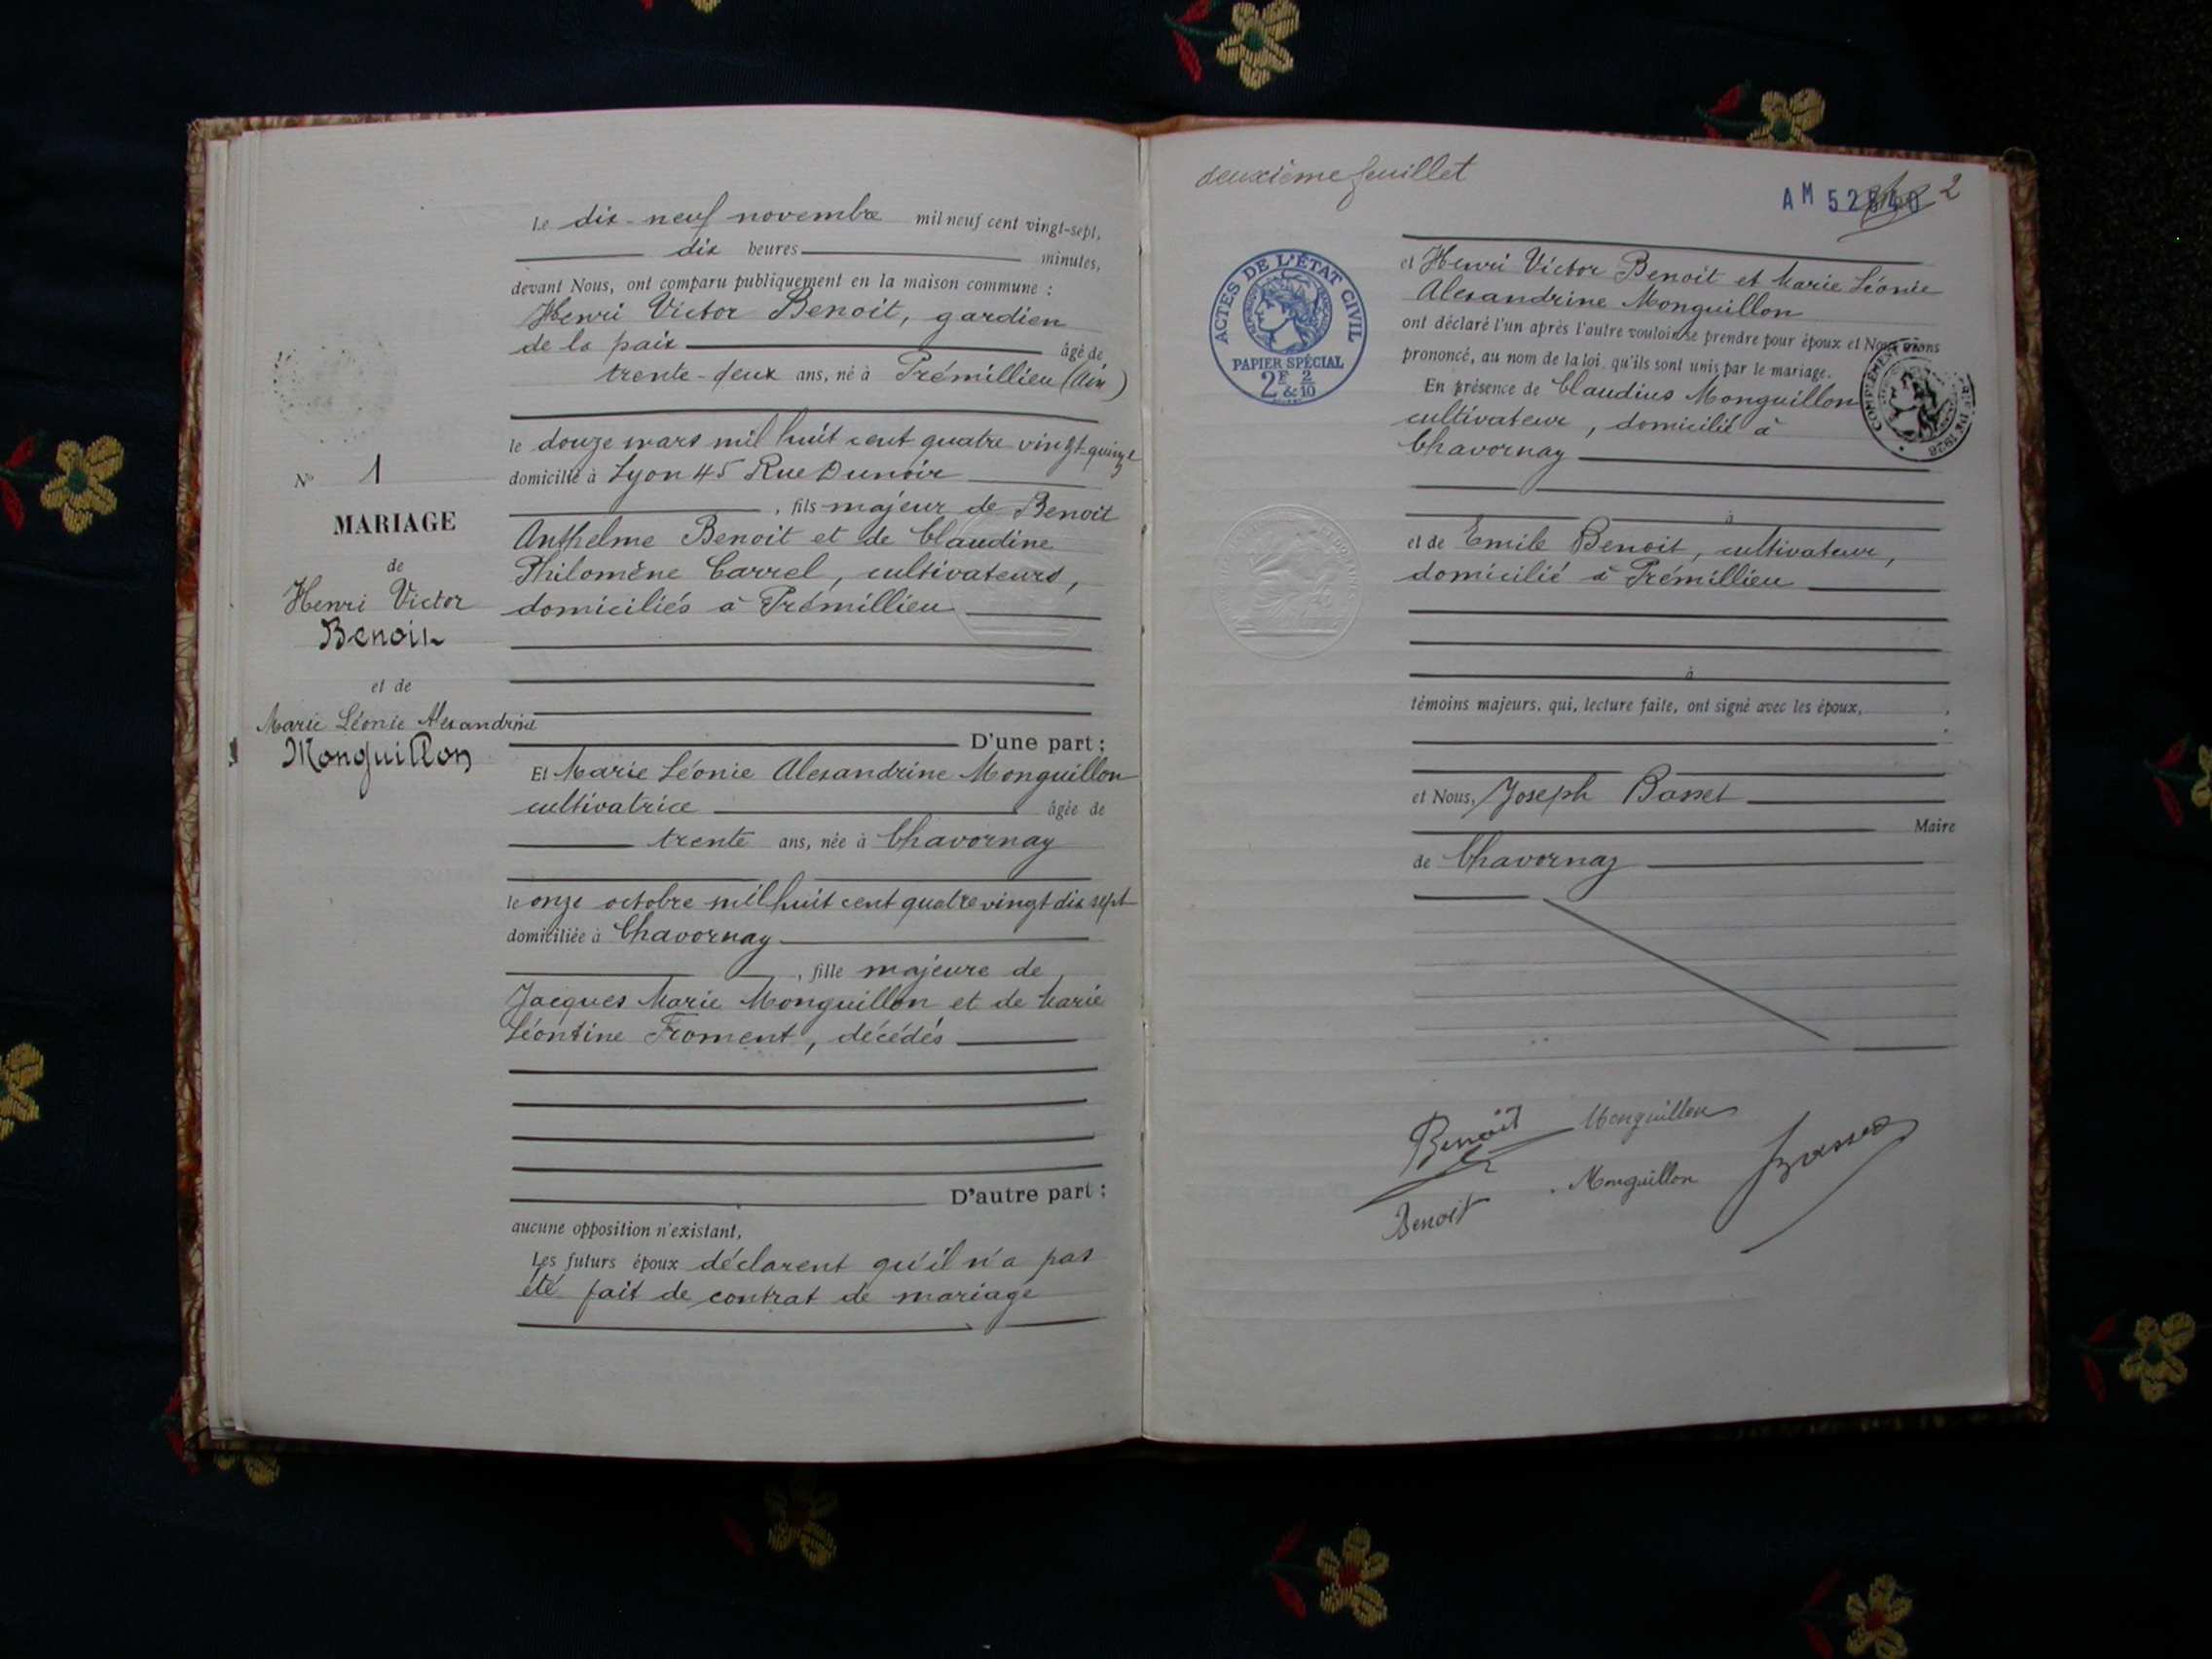 Le dix-neuf novembre mil neuf cent vingt-sept,
dix heures minutes,
devant Nous, ont comparu publiquement en la maison commune :
Henri Victor Benoit, gardien
de la paix âgé de
trente-deux ans, né à Prémillieu (Ain)
le douze mars mil huit cent quatre vingt-quinze
domicilié à Lyon 45 Rue Dunoir
, fils majeur de Benoit
Anthelme Benoit et de Claudine
Philomène Carrel, cultivateurs,
domiciliés à Prémillieu
D'une part :
Et Marie Léonie Alexandrine Monguillon
cultivatrice âgée de
trente ans, née à Chavornay
le onze octobre mil huit cent quatre vingt dix sept
domiciliée à Chavornay
, fille majeure de
Jacques Marie Monguillon et de Marie
Léontine Froment, décédés
D'autre part :
aucune opposition n'existant,
Les futurs époux déclarent qu'il n'a pas
été fait de contrat de mariage
N° 1
MARIAGE
de
Henri Victor
Benoit
et de
Marie Léonie Alexandrine
Monguillon
deuxième feuillet
AM 52840 2
ACTES DE L'ÉTAT CIVIL
PAPIER SPÉCIAL
2F & 2/10
et Henri Victor Benoit et Marie Léonie
Alexandrine Monguillon
ont déclaré l'un après l'autre vouloir se prendre pour époux et Nous avons
prononcé, au nom de la loi, qu'ils sont unis par le mariage.
En présence de Claudius Monguillon
cultivateur, domicilié à
Chavornay
COMPLÉMENT
DE 1926
à
et de Emile Benoit, cultivateur,
domicilié à Prémillieu
à
témoins majeurs, qui, lecture faite, ont signé avec les époux,
et Nous, Joseph Basset
Maire
de Chavornay
Benoit Monguillon
Benoit Monguillon Basset